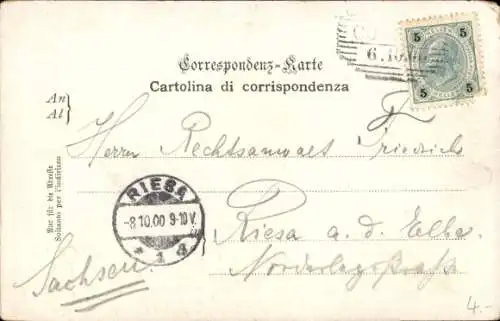 Correspondenz-Karte
Cartolina di corrispondenza
An
Al
5 5
5 5
6.10.
Herrn Rechtsanwalt Friedrich
RIESA
-8.10.00 9-10V.
* 1 d
Riesa a. d. Elbe
Sachsen.
Nur für die Adresse
Soltanto per l'indirizzo
4.-